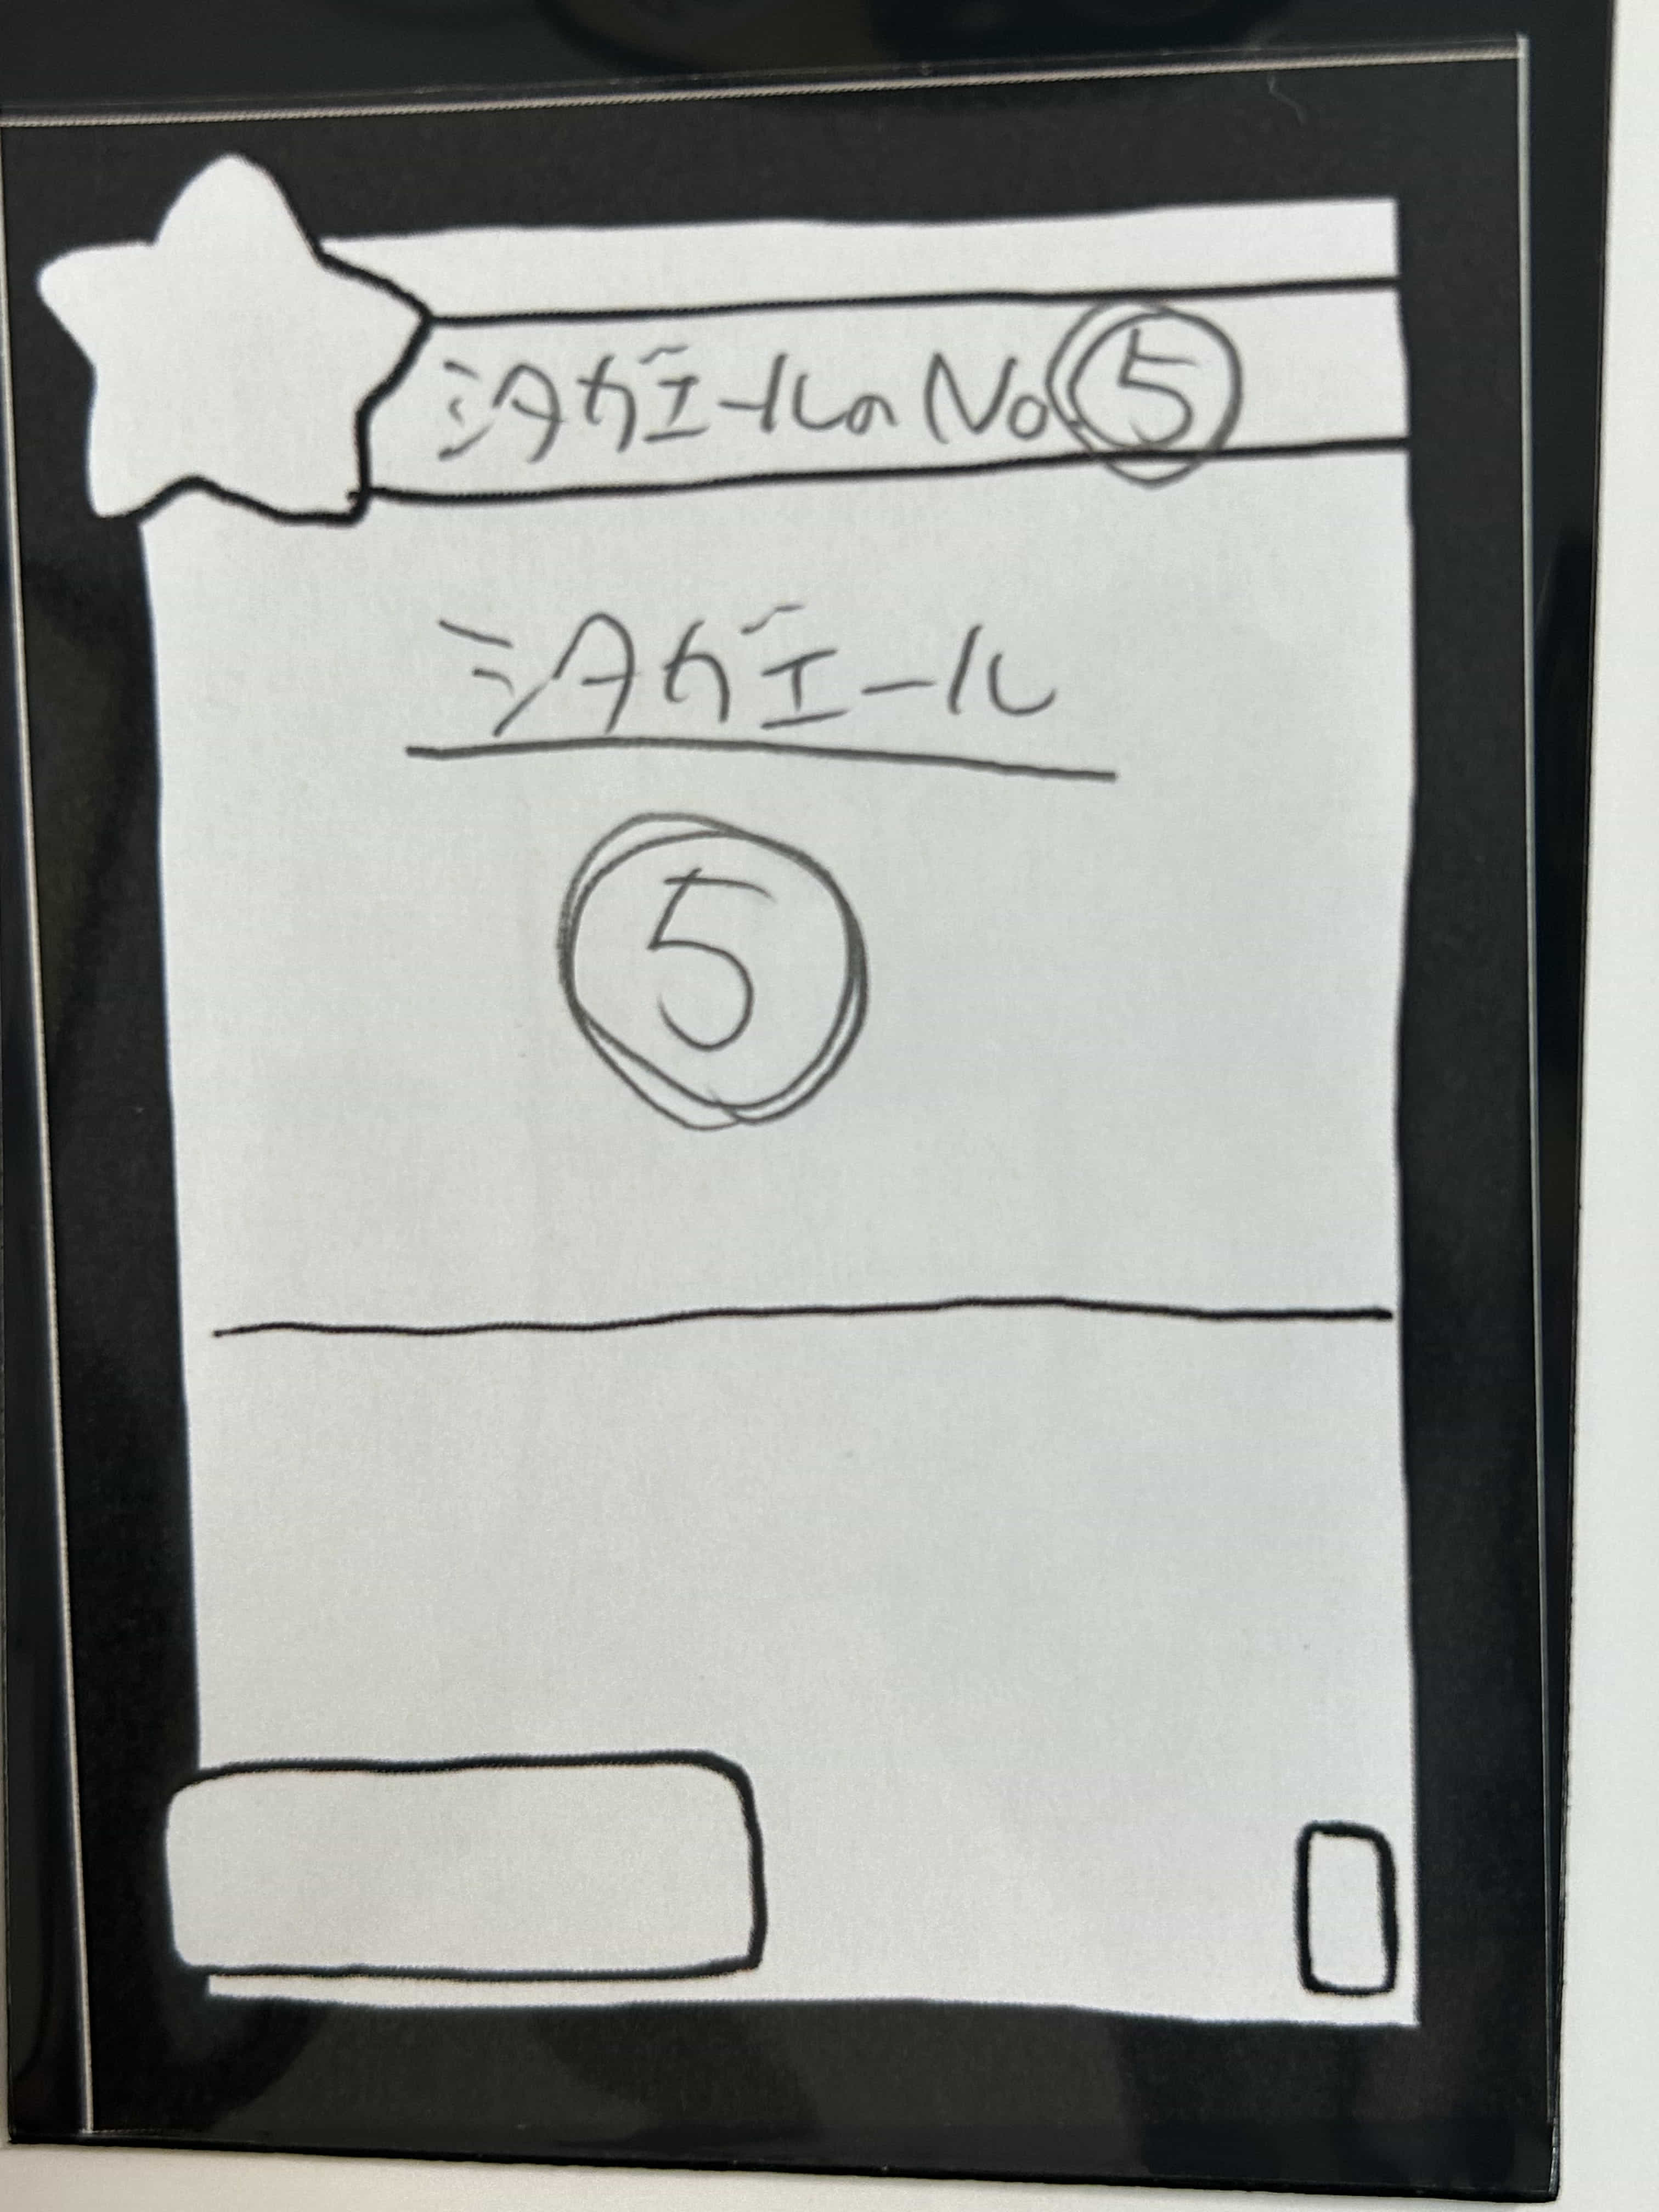 シタガエールの No.⑤
シタガエール
⑤